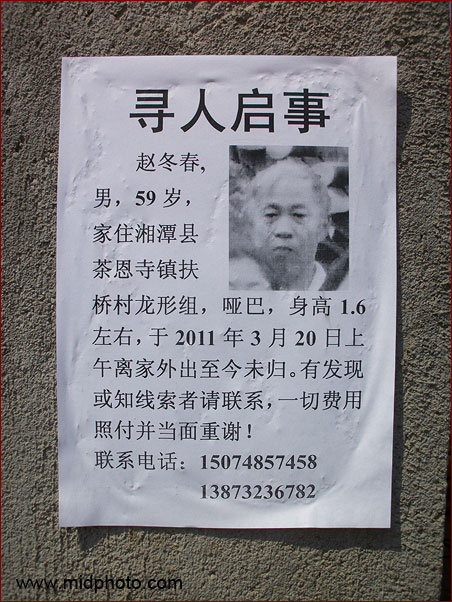 寻人启事
赵冬春,
男，59 岁，
家住湘潭县
茶恩寺镇扶
桥村龙形组，哑巴，身高 1.6
左右，于 2011 年 3 月 20 日上
午离家外出至今未归。有发现
或知线索者请联系，一切费用
照付并当面重谢！
联系电话：15074857458
13873236782
www.midphoto.com